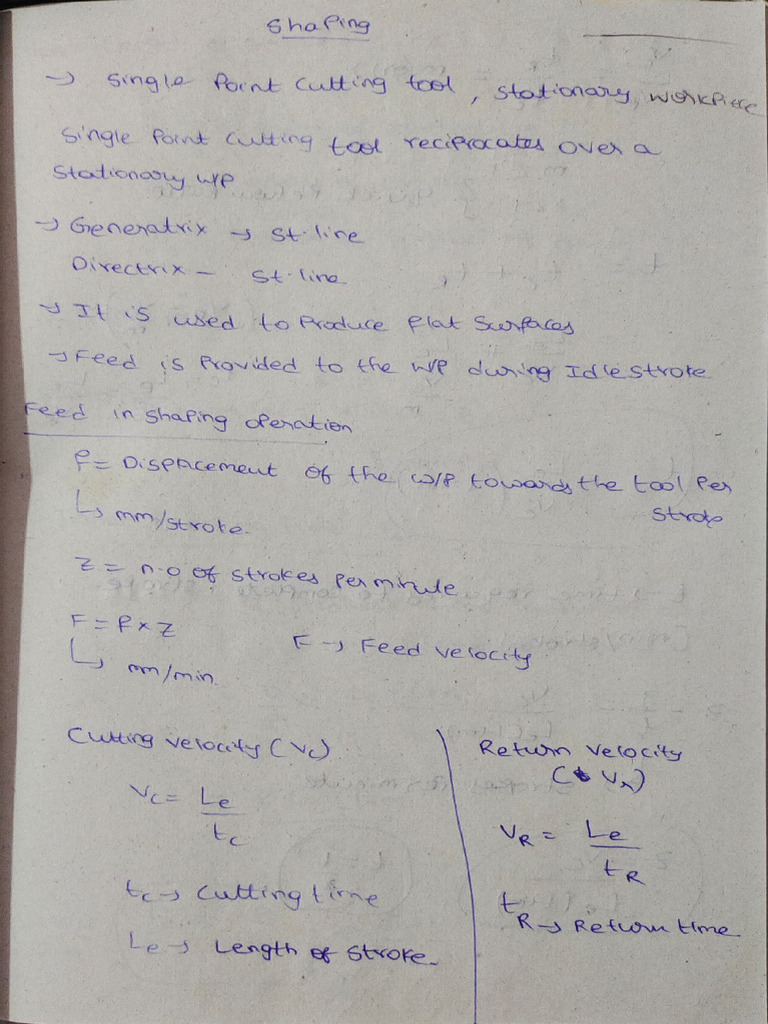 Shaping
→ Single Point Cutting tool, stationary workpiece
Single Point Cutting tool reciprocates over a
stationary w/p
→ Generatrix → St. line
Directrix - St. line
→ It is used to Produce flat Surfaces
→ Feed is Provided to the w/p during Idle stroke
Feed in Shaping operation
f = Displacement of the w/p towards the tool Per
stroke
↳ mm/stroke.
Z = n.o of strokes Per minute
F = f x Z
F → Feed velocity
↳ mm/min.
Cutting velocity (Vc)
Vc = Le / tc
tc → Cutting time
Le → Length of Stroke.
Return velocity
(VR)
VR = Le / tR
tR → Return time